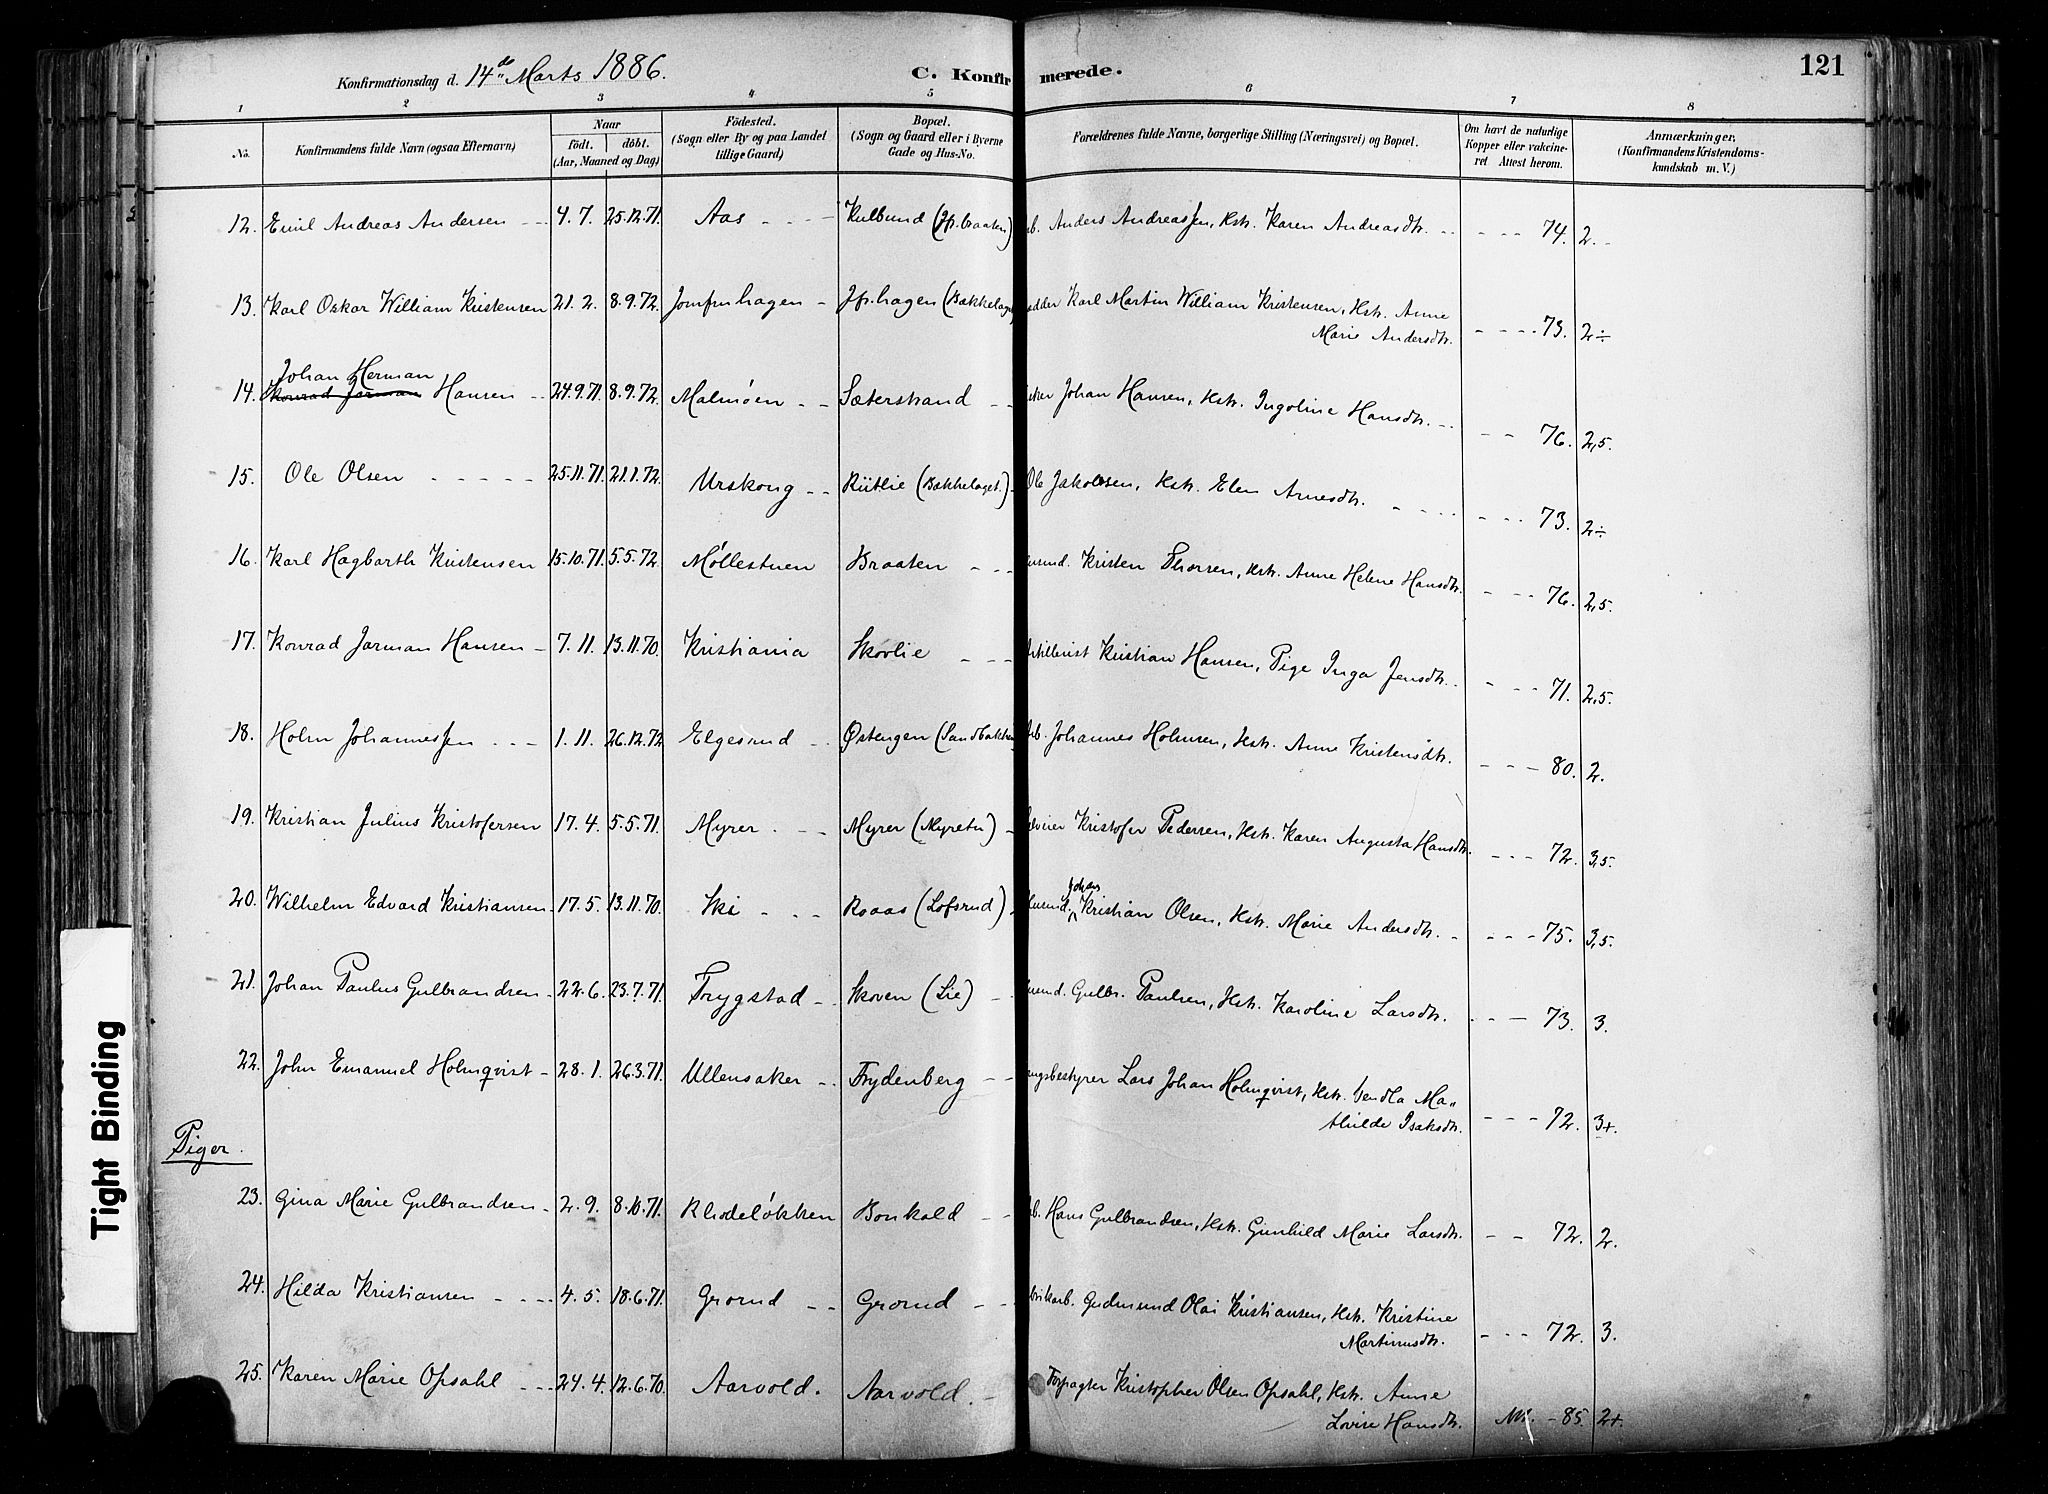 Konfirmationsdag d. 14de Marts 1886.
C. Konfirmerede.
121
1 2 3 4 5 6 7 8
No. Konfirmandens fulde Navn (ogsaa Efternavn) Naar født. døbt. (Aar, Maaned og Dag) Fødested. (Sogn eller By og paa Landet tillige Gaard) Bopæl. (Sogn og Gaard eller i Byerne Gade og Hus-No. Forældrenes fulde Navne, borgerlige Stilling (Næringsvei) og Bopæl. Om havt de naturlige Kopper eller vakcineret Attest herom. Anmærkninger, (Konfirmandens Kristendomskundskab m. V.)
12. Emil Andreas Andersen 4.7. 25.12.71. Aas Kulbund (Jfr.braaten) Anders Andreassen, Kstr. Karen Andreasdtr. 74. 2.
13. Karl Oskar William Kristensen 21.2. 8.9.72. Jomfruhagen Jfr.hagen (Bækkelaget) Karl Martin William Kristensen, Kstr. Anne
Marie Andersdtr. 73. 2÷
Johan Herman
14. Konrad Jarman Hansen 24.9.71. 8.9.72. Malmøen Sæterstrand Johan Hansen, Kstr. Ingoline Hansdtr. 76. 2,5.
15. Ole Olsen 25.11.71. 21.1.72. Urskoug Rütlie (Bækkelaget.) Ole Jakobsen, Kstr. Elen Arnesdtr. 73. 2÷
16. Karl Hagbarth Kristensen 15.10.71. 5.5.72. Møllestuen Braaten Kristen Thorsen, Kstr. Anne Helene Hansdtr. 76. 2,5.
17. Konrad Jarman Hansen 7.11. 13.11.70. Kristiania Skovlie Kristian Hansen, Pige Inga Jensdtr. 71. 2,5.
18. Holm Johannessen 1.11. 26.12.72 Elgesund Østengen (Sandbakken) Johannes Holmsen, Kstr. Anne Kristensdtr. 80. 2.
19. Kristian Julius Kristofersen 17.4. 5.5.71. Myrer. Myrer (Myretu) Kristofer Pedersen, Kstr. Karen Augusta Hansdtr. 72. 3,5.
20. Wilhelm Edvard Kristiansen 17.5. 13.11.70. Ski Roaas (Lofsrud) Johan Kristian Olsen, Kstr. Marie Andersdtr. 75. 3,5.
21. Johan Paulus Gulbrandsen 22.6. 23.7.71. Trygstad Skoven (Lie) Gulbr. Paulsen, Kstr. Karoline Larsdtr. 73. 3.
22. John Emanuel Holmqvist 28.1. 26.3.71. Ullensaker Frydenberg Lars Johan Holmqvist, Kstr. Vendla Ma-
thilde Isaksdtr. 72. 3+.
Piger.
23. Gina Marie Gulbrandsen 2.9. 8.10.71. Rhodeløkken Bonkald Hans Gulbrandsen, Kstr. Gunhild Marie Larsdtr. 72. 2.
24. Hilda Kristiansen 4.5. 18.6.71. Grorud Grorud Gudmund Olai Kristiansen, Kstr. Kristine
Martinusdtr. 72. 3.
25. Karen Marie Opsahl 24.4. 12.6.70. Aarvold. Aarvold. Forpagter Kristopher Olsen Opsahl, Kstr. Anne
Lovise Hansdtr. 85. 2+.
Tight Binding